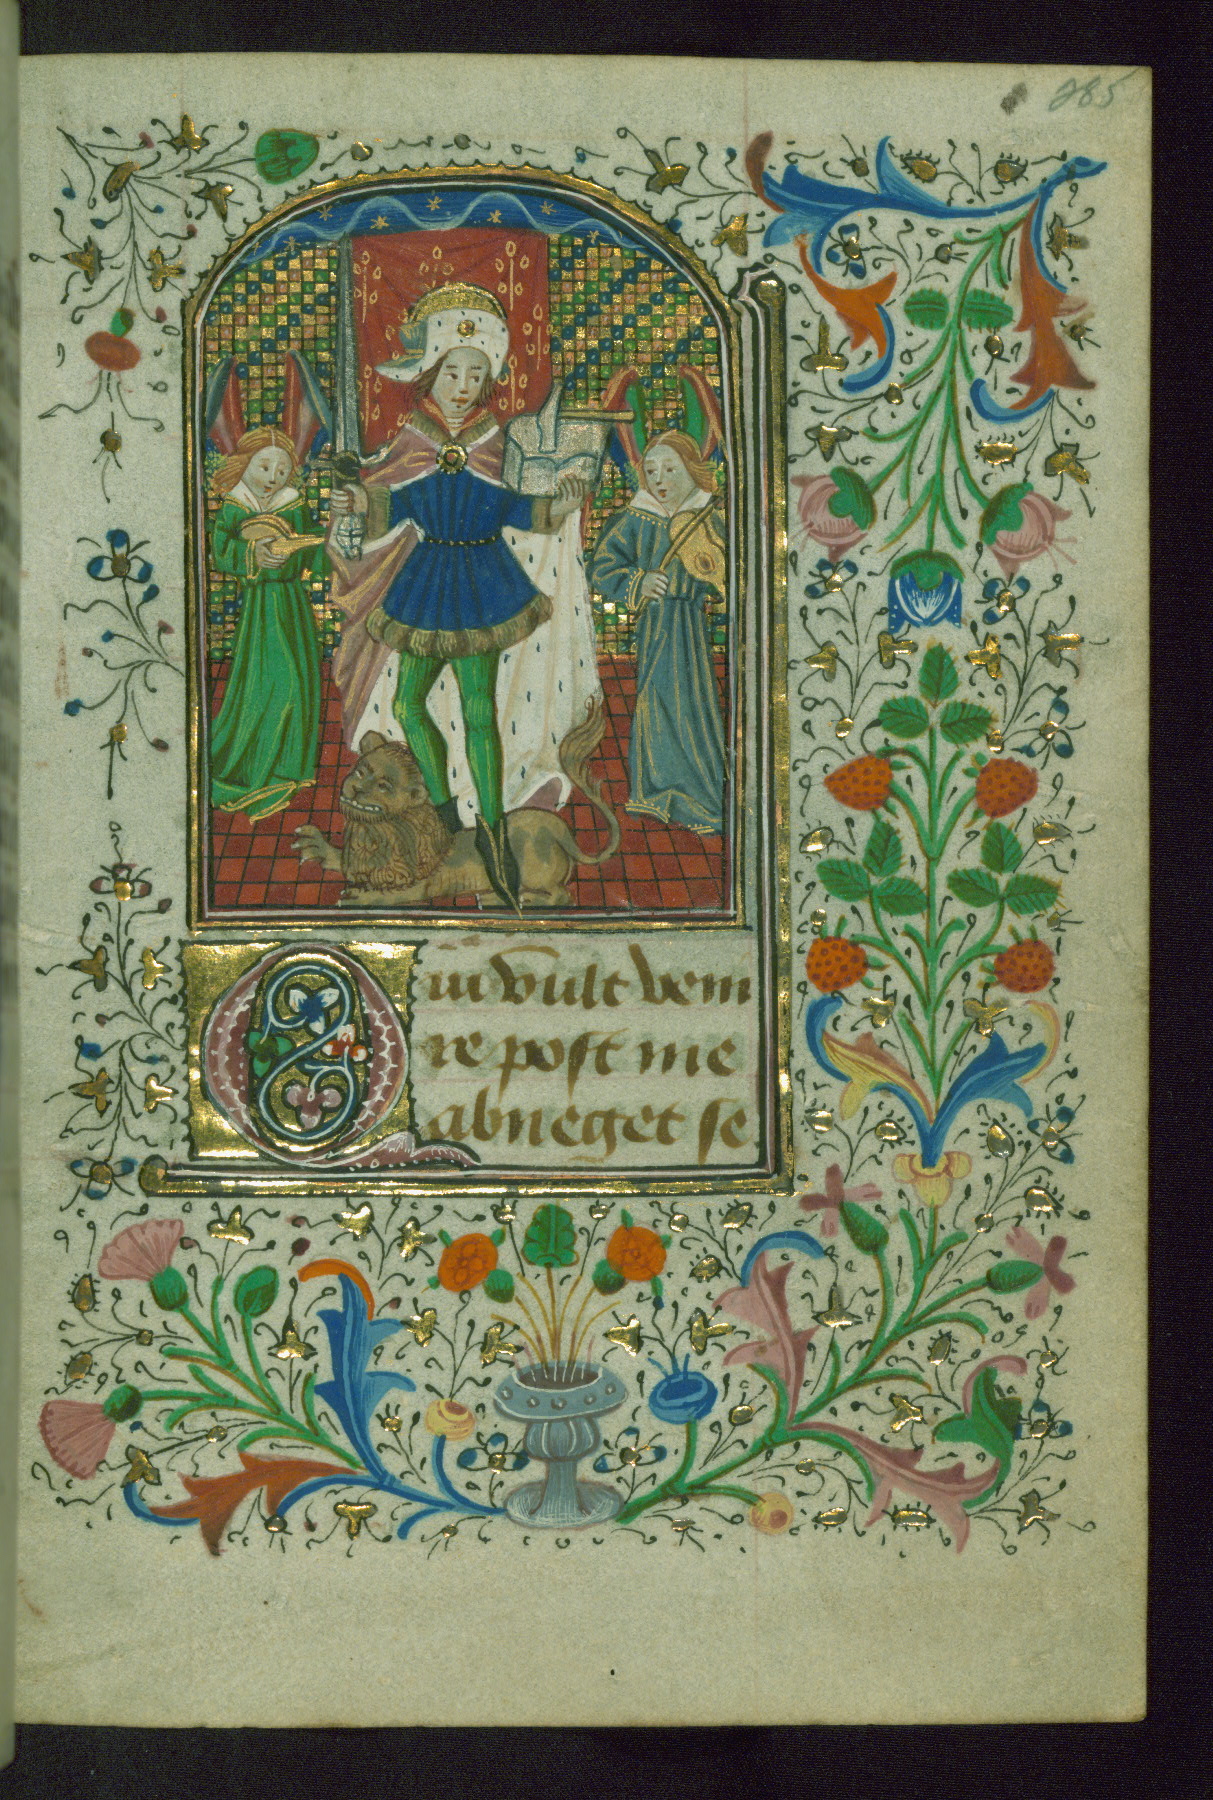 285
Qui vult veni
re post me
abneget se